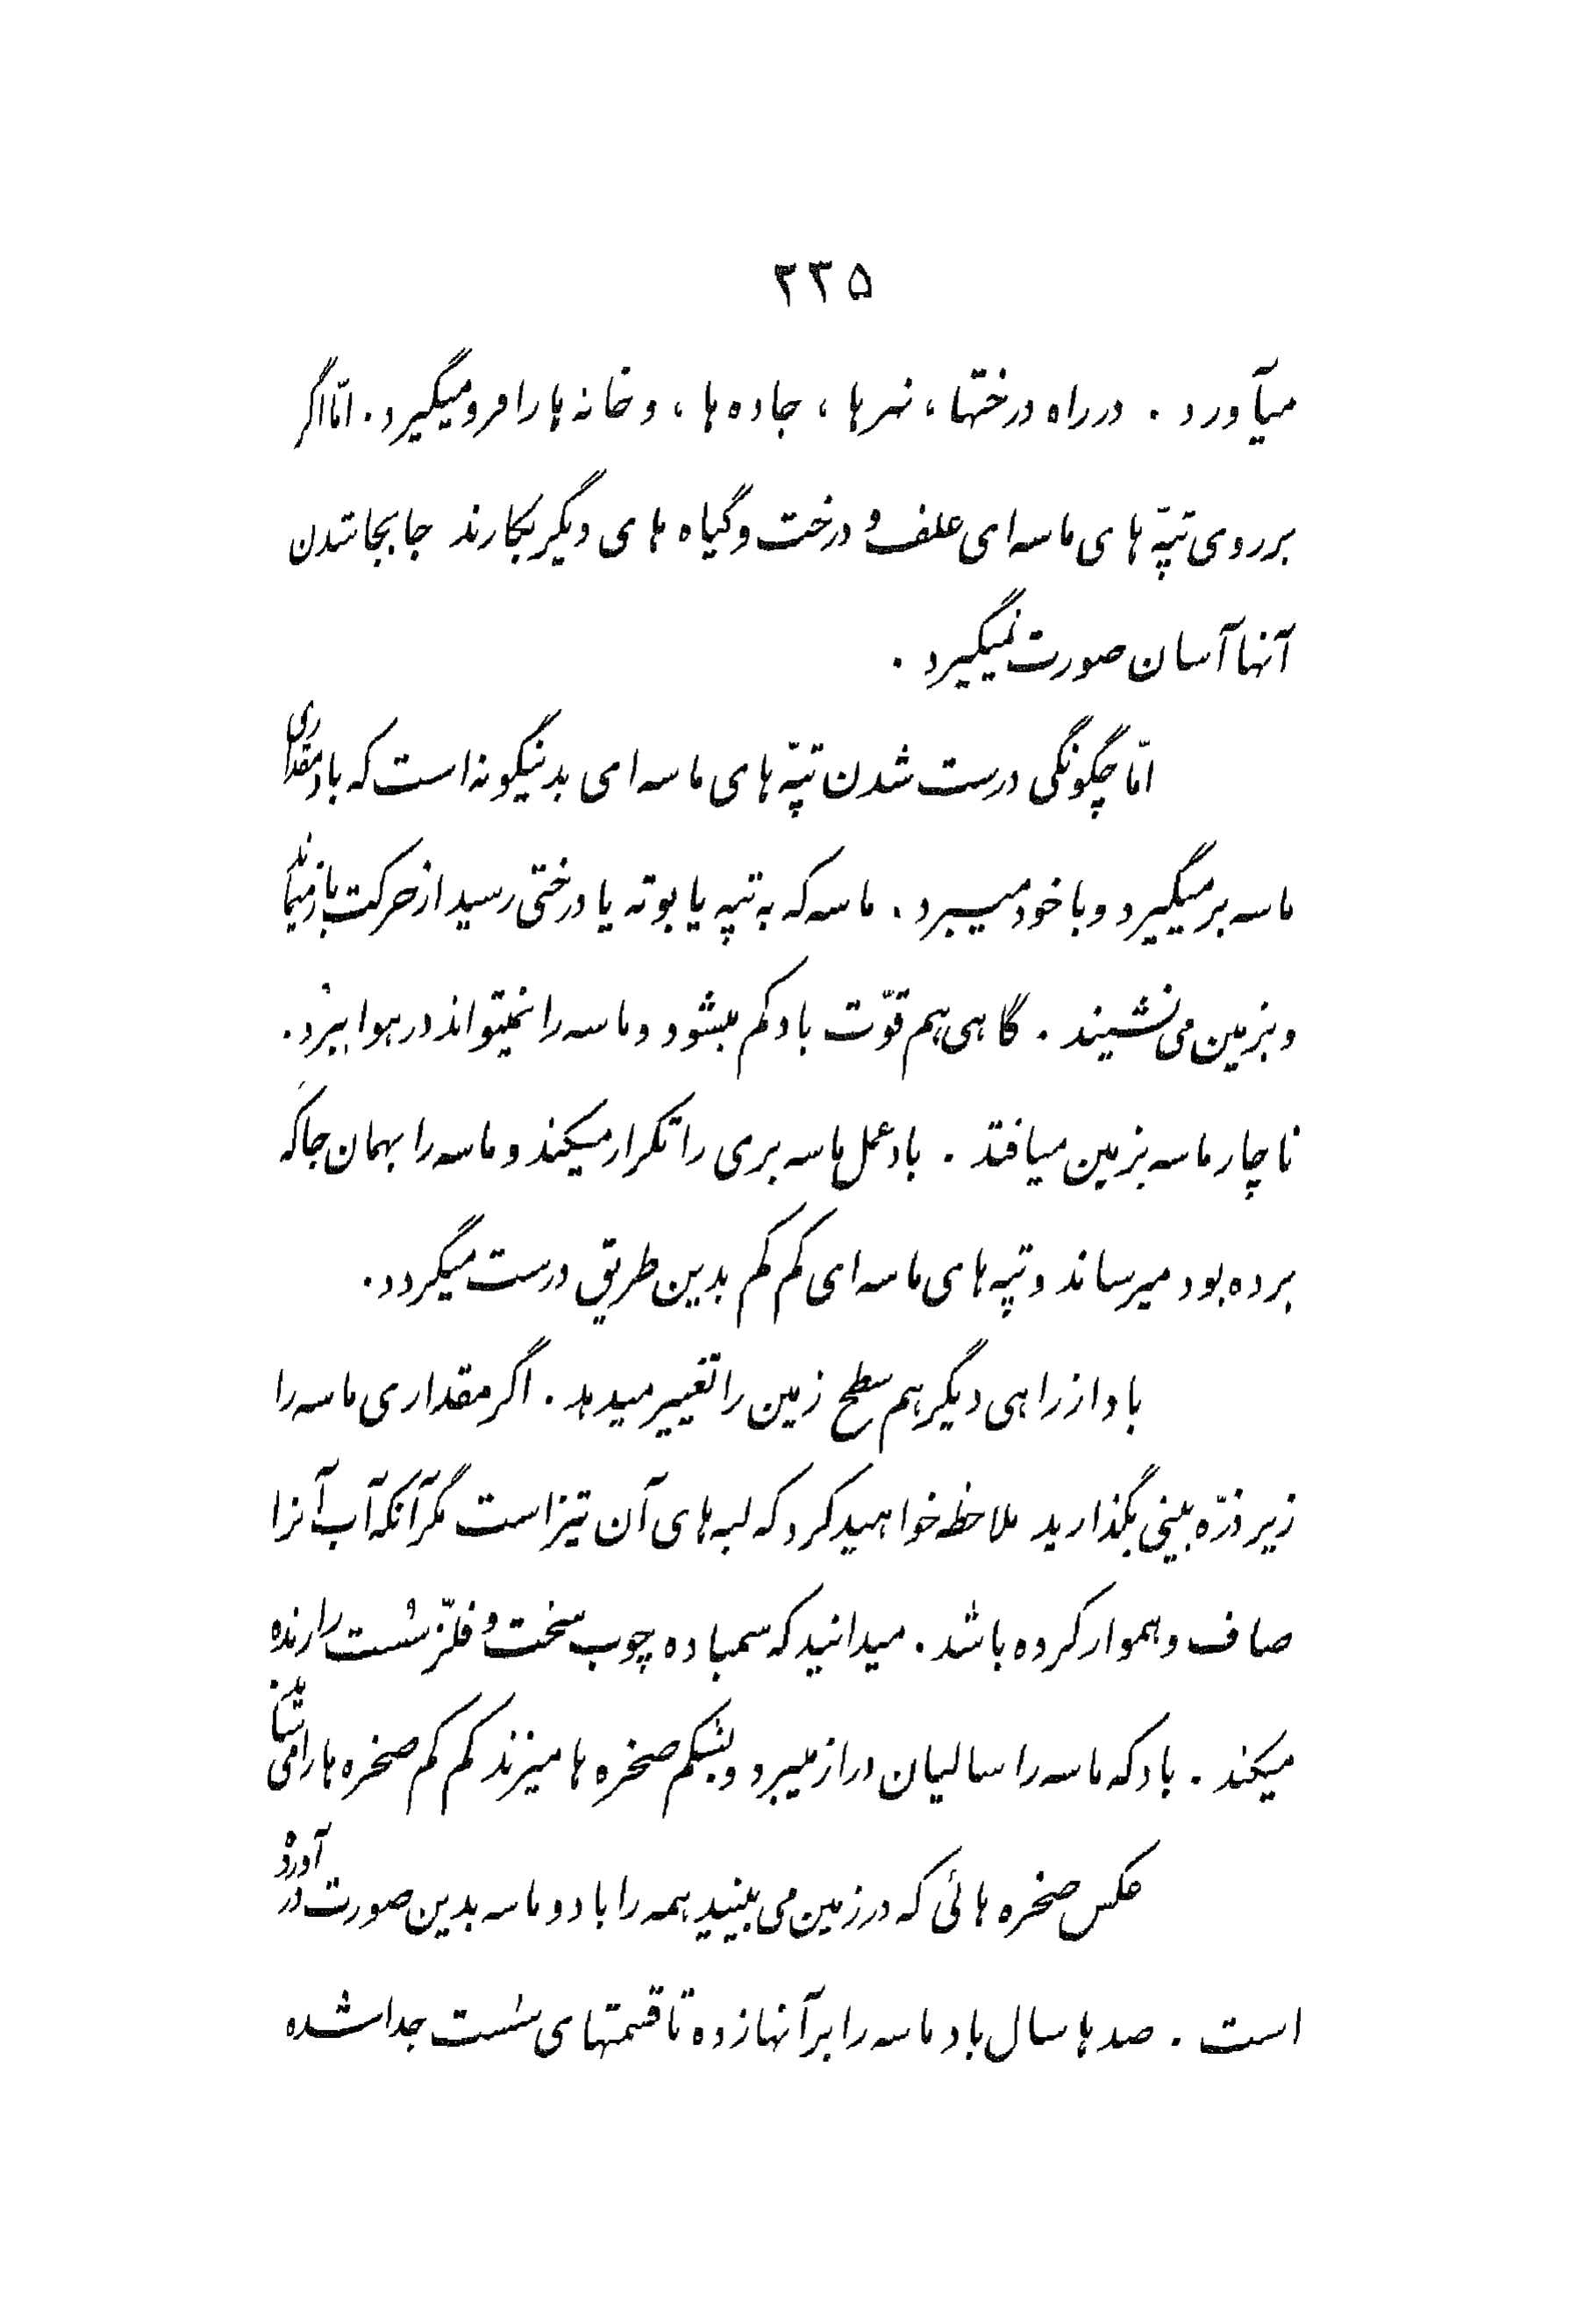 ۲۳۵
میآورد . در راه درختها ، نهرها ، جاده ها ، و خانه ها را فرو میگیرد . امّا اگر
بر روی تپّه های ماسه ای علف و درخت و گیاه های دیگر بکارند جابجا شدن
آنها آسان صورت نمیگیرد .
امّا چگونگی درست شدن تپّه های ماسه ای بدینگونه است که باد مقداری
ماسه بر میگیرد و با خود میبرد . ماسه که به تپه یا بوته یا درختی رسید از حرکت باز میماند
و بزمین می نشیند . گاهی هم قوّت باد کم میشود و ماسه را نمیتواند در هوا ببرد .
ناچار ماسه بزمین میافتد . باد عمل ماسه بری را تکرار میکند و ماسه را بهمان جا که
برده بود میرساند و تپه های ماسه ای کم کم بدین طریق درست میگردد .
باد از راهی دیگر هم سطح زمین را تغییر میدهد . اگر مقداری ماسه را
زیر ذرّه بینی بگذارید ملاحظه خواهید کرد که لبه های آن تیز است مگر آنکه آب آنرا
صاف و هموار کرده باشد . میدانید که سمباده چوب سخت و فلزّ سُست را رنده
میکند . باد که ماسه را سالیان دراز میبرد و بشکم صخره ها میزند کم کم صخره ها را می تساید .
عکس صخره هائی که در زمین می بینید همه را باد و ماسه بدین صورت در آورده
است . صدها سال باد ماسه را بر آنها زده تا قسمتهای سُست جدا شده